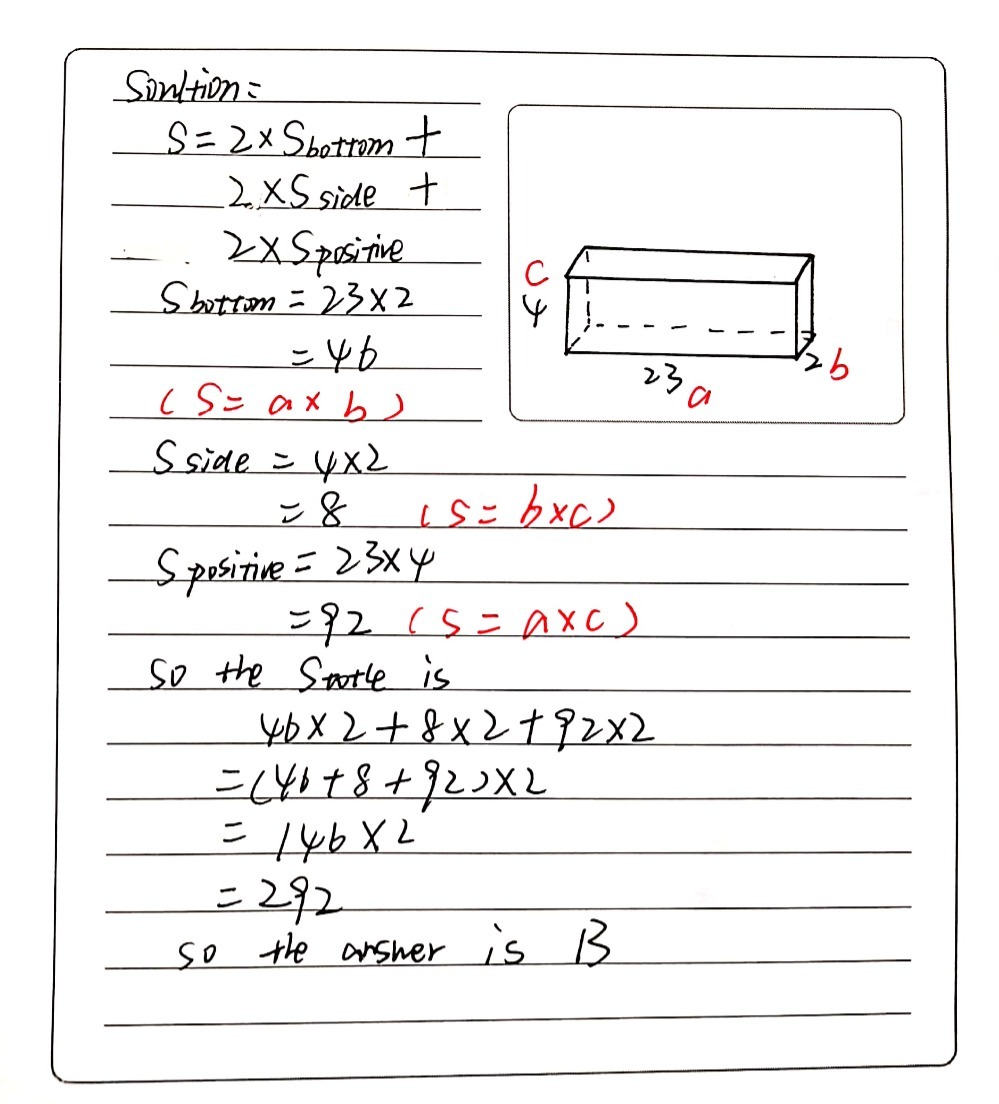 Sonltion=
S=2×Sbottom+
2×Sside +
2×Spositive
Sbottom=23×2
=46
(S= a× b)
Sside = 4×2
=8 (S= b×c)
Spositive=23×4
=92 (S= a×c)
so the Stotle is
46×2+8×2+92×2
=(46+8+92)×2
= 146×2
=292
so the answer is B
c
4
23 a
2 b